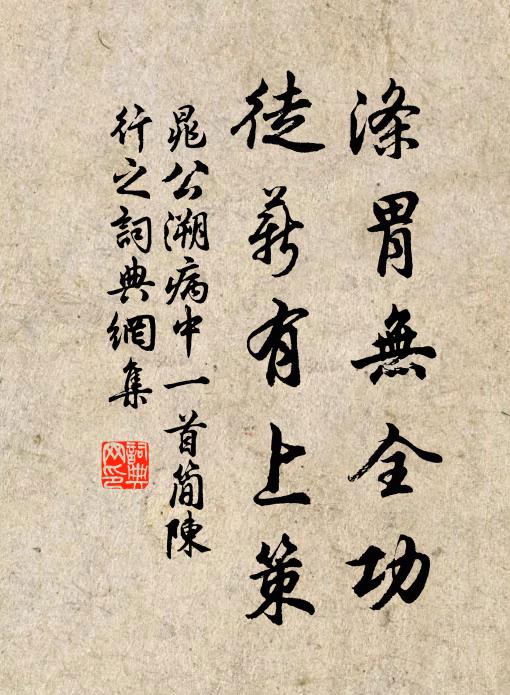 滌胃無全功
徙薪有上策
晁公溯病中一首簡陳
行之詞典網集
詞典网印